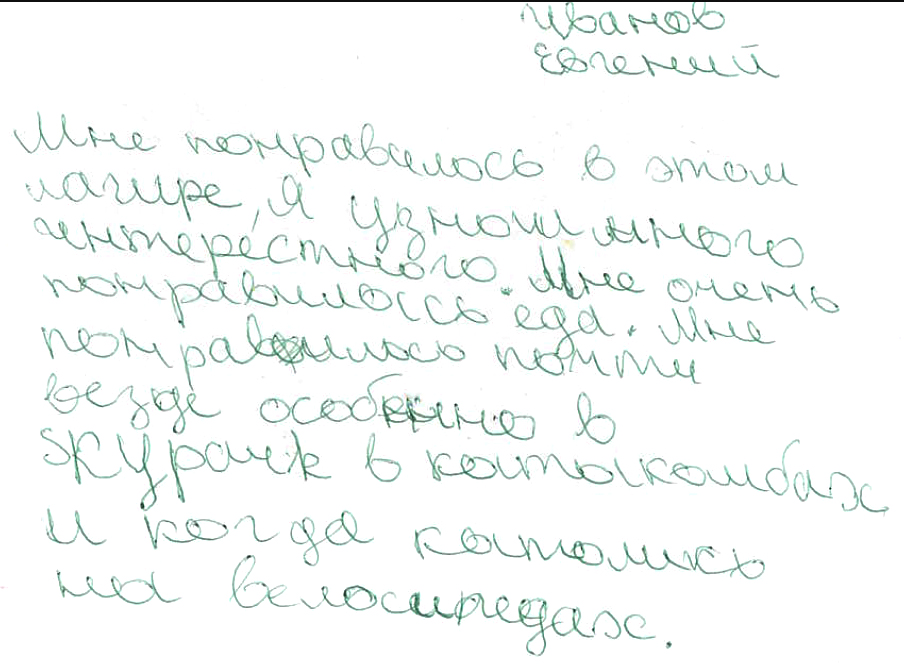 Иванов
Евгений
Мне понравилось в этом
лагире, Я узнал много
интерестного. Мне очень
понравилоссь еда. Мне
понравилось почти
везде особенно в
SKYPARK в катакомбах
и когда катались
на велосипедах.